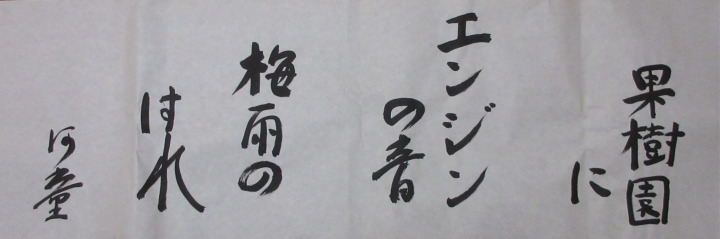 果樹園
に
エンジン
の音
梅雨の
はれ
河童